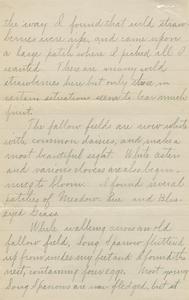 the way I found that wild straw-
berries were ripe, and came upon
a large patch where I picked all I
wanted. There are many wild
strawberries here but only those in
certain situations seem to bear much
fruit.
The fallow fields are now white
with common daisies, and make a
most beautiful sight. White aster
and various clovers are also begin-
ning to bloom. I found several
patches of Meadow Rue and Blue-
eyed Grass
While walking across an old
fallow field, Song Sparrow fluttered
up from under my feet and I found its
nest, containing four eggs. Most young
Song Sparrows are now fledged, but at